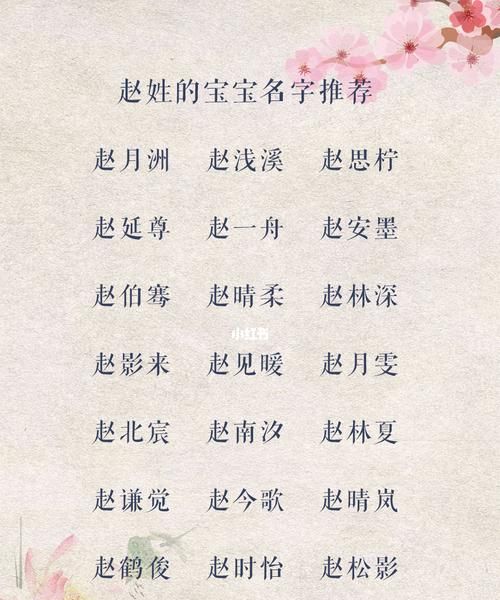 赵姓的宝宝名字推荐
赵月洲 赵浅溪 赵思柠
赵延尊 赵一舟 赵安墨
赵伯骞 赵晴柔 赵林深
小红书
赵影来 赵见暖 赵月雯
赵北宸 赵南汐 赵林夏
赵谦觉 赵今歌 赵晴岚
赵鹤俊 赵时怡 赵松影